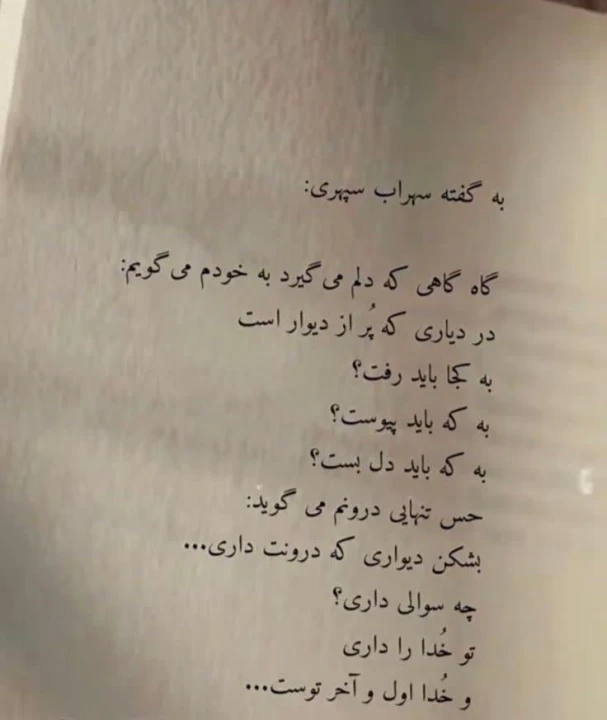 به گفته سهراب سپهری:
گاه گاهی که دلم می‌گیرد به خودم می‌گویم:
در دیاری که پُر از دیوار است
به کجا باید رفت؟
به که باید پیوست؟
به که باید دل بست؟
حس تنهایی درونم می گوید:
بشکن دیواری که درونت داری...
چه سوالی داری؟
تو خُدا را داری
و خُدا اول و آخر توست...